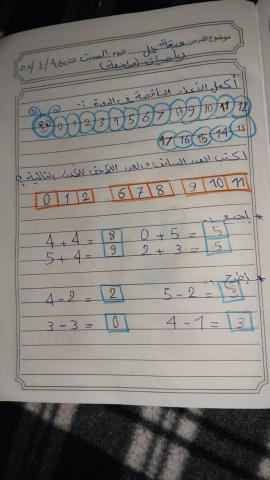 موضوع الدرس ورقة عمل اليوم السبت التاريخ ٩ / ٤ /
رياضيات (مراجعة)
أكمل الأعداد الناقصة في الدودة :-
0 1 2 3 4 5 6 7 8 9 10 11 12
17 16 15 14 13
اكتب العدد السابق والعدد اللاحق للأعداد التالية :
0 1 2 6 7 8 9 10 11
* اجمع :-
4 + 4 = 8 0 + 5 = 5
5 + 4 = 9 2 + 3 = 5
* اطرح :-
4 - 2 = 2 5 - 2 = 3
3 - 3 = 0 4 - 1 = 3